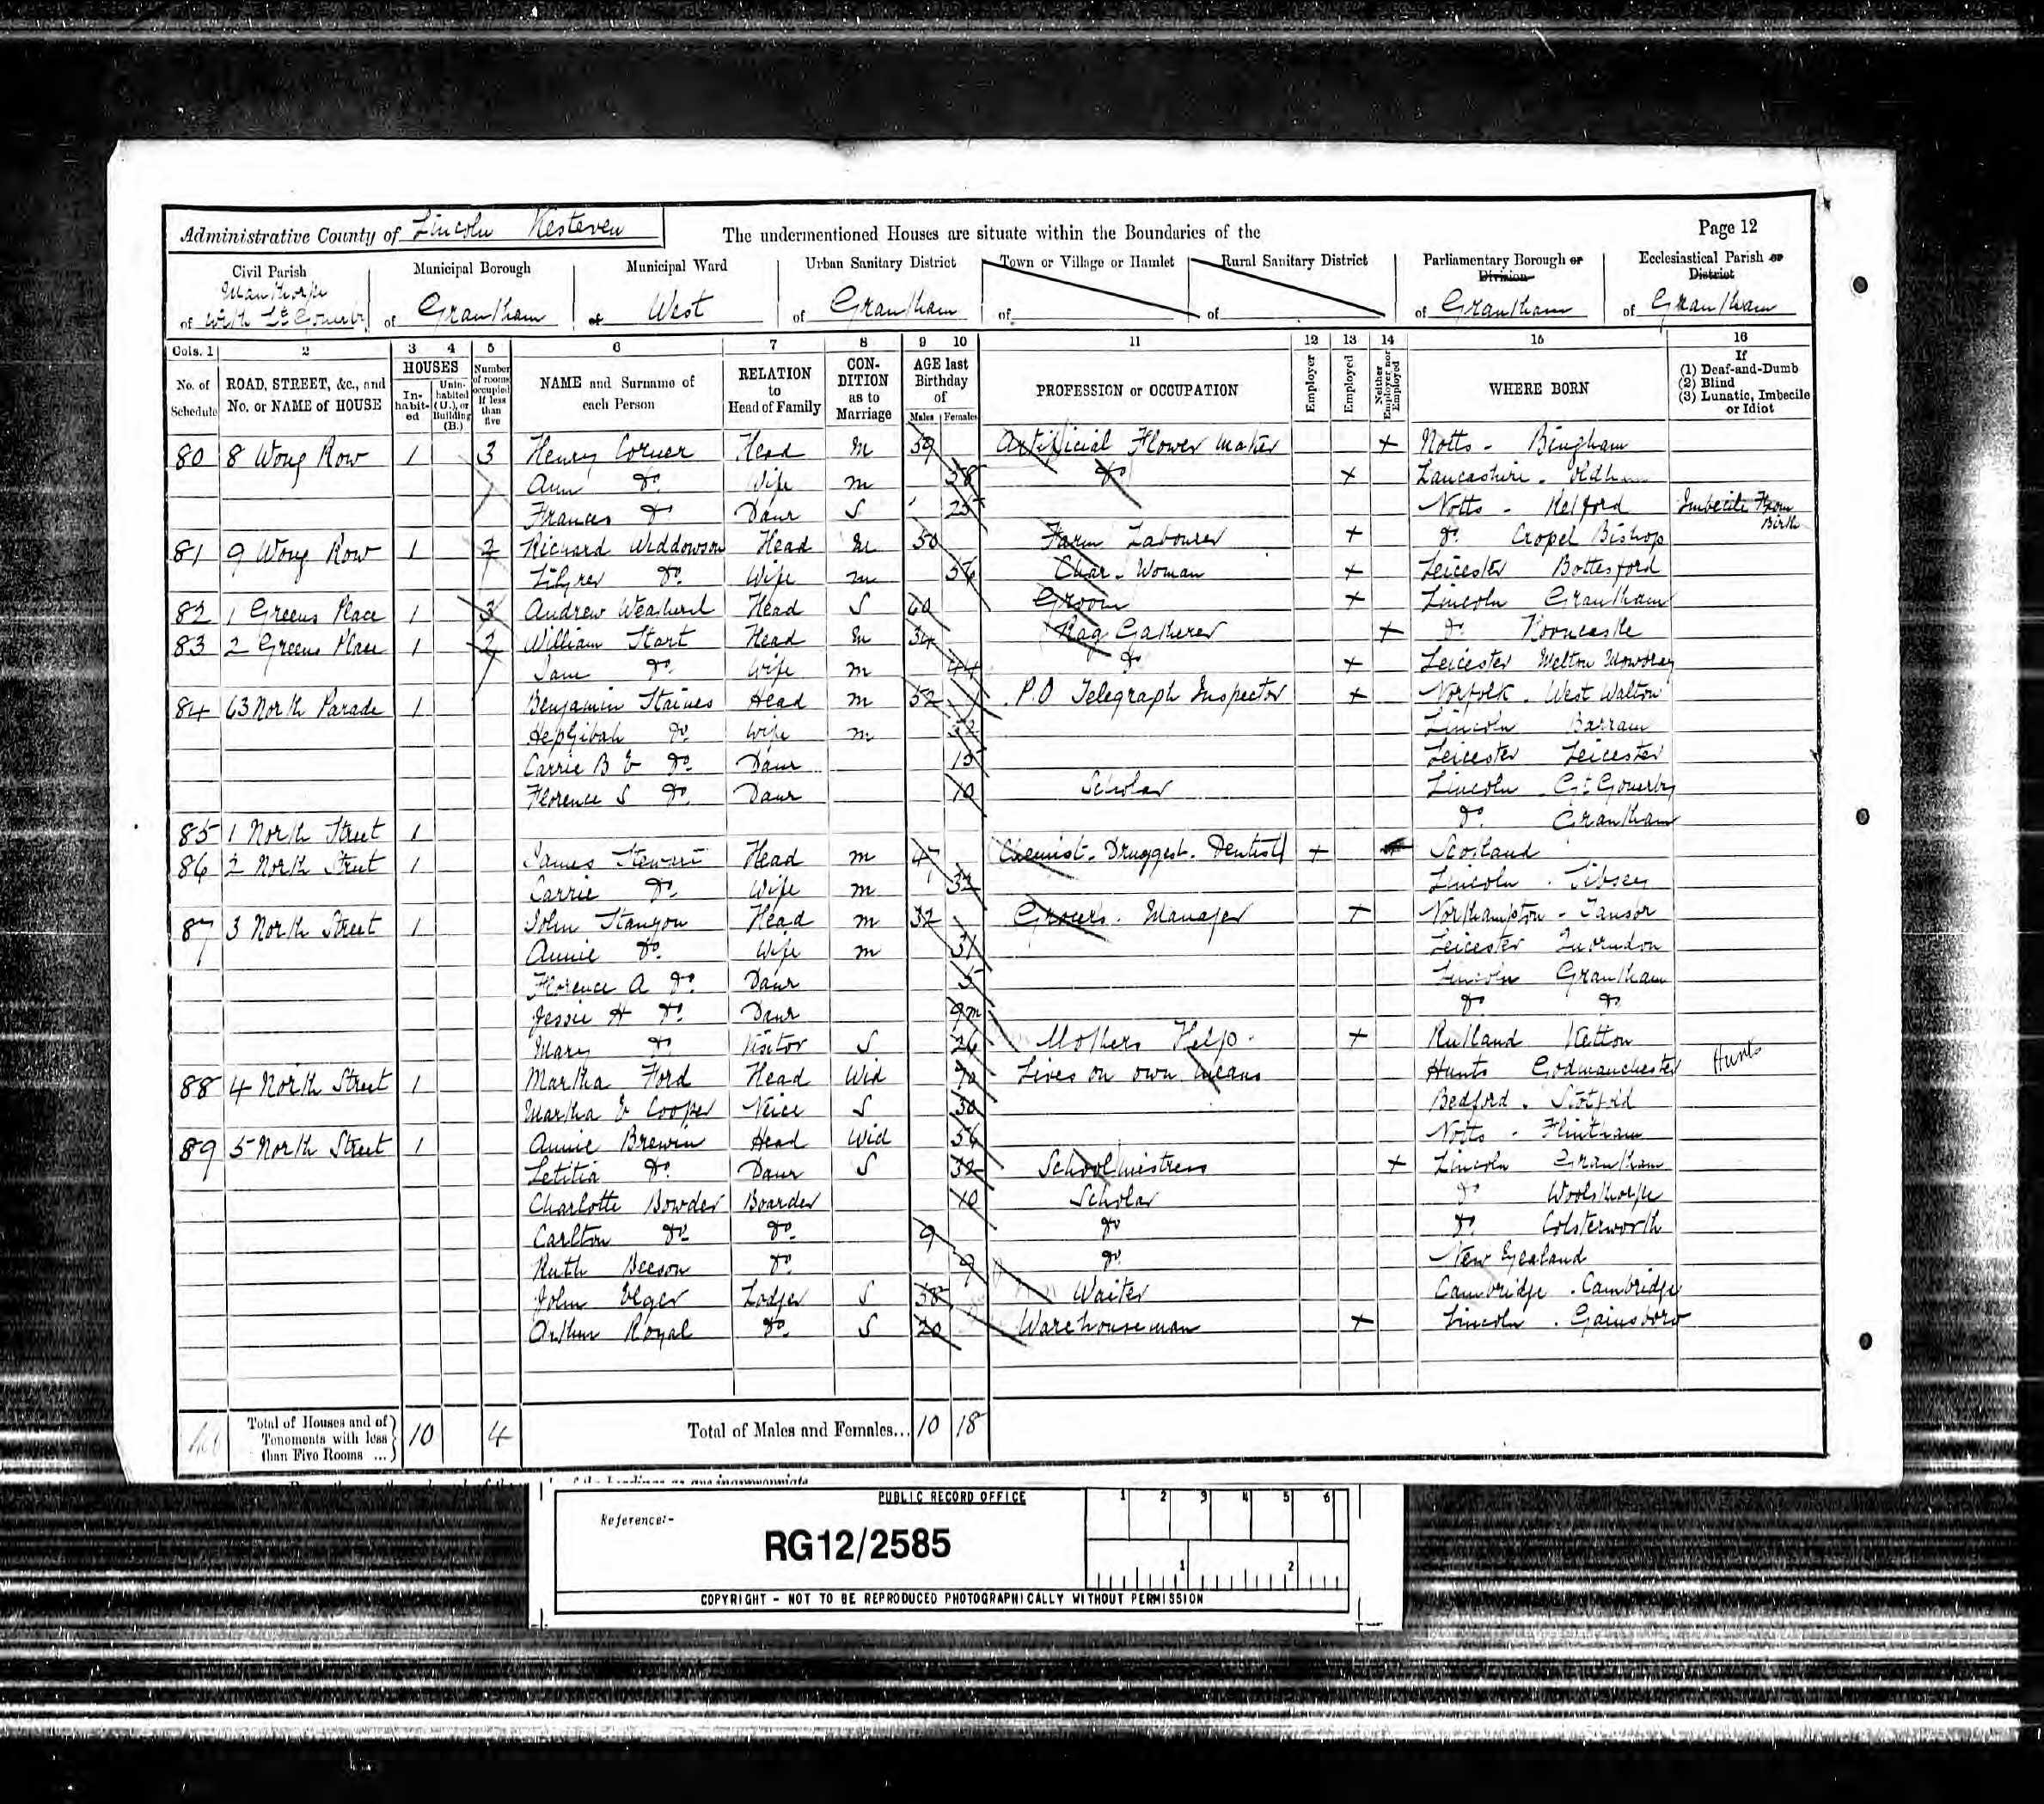 Administrative County of Lincoln Kesteven
The undermentioned Houses are situate within the Boundaries of the
Page 12
Civil Parish of Manthorpe with Lt Gonerby
Municipal Borough of Grantham
Municipal Ward of West
Urban Sanitary District of Grantham
Town or Village or Hamlet of
Rural Sanitary District of
Parliamentary Borough or Division of Grantham
Ecclesiastical Parish or District of Grantham
Cols. 1 2 3 4 5 6 7 8 9 10 11 12 13 14 15 16
No. of Schedule
ROAD, STREET, &c., and No. or NAME of HOUSE
HOUSES
In-habit-ed
Unin-habited (U.), or Building (B.)
Number of rooms occupied if less than five
NAME and Surname of each Person
RELATION to Head of Family
CON-DITION as to Marriage
AGE last Birthday of
Males Females
PROFESSION or OCCUPATION
Employer
Employed
Neither Employer nor Employed
WHERE BORN
If
(1) Deaf-and-Dumb
(2) Blind
(3) Lunatic, Imbecile or Idiot
80 8 Wong Row 1 3 Henry Corner Head M 59 Artificial Flower maker + Notts - Bingham
Ann Do Wife M 58 Do + Lancashire - Oldham
Frances Do Daur S 25 Notts - Retford Imbecile From Birth
81 9 Wong Row 1 2 Richard Widdowson Head M 50 Farm Labourer + Do Cropel Bishop
Do Wife M 56 Char-Woman + Leicester Bottesford
82 1 Greens Place 1 3 Andrew Head S 60 Groom + Lincoln Grantham
83 2 Greens Place 1 2 William Start Head M 34 Rag Gatherer + Do Horncastle
Jane Do Wife M 44 Do + Leicester Melton Mowbray
84 63 North Parade 1 Benjamin Staines Head M 52 P.O Telegraph Inspector + Norfolk - West Walton
Hepzibah Do Wife M 52 Lincoln
Carrie B E Do Daur 15 Leicester Leicester
Florence S Do Daur 10 Scholar Lincoln Gt Gonerby
85 1 North Street 1 Do Grantham
86 2 North Street 1 James Stewart Head M 47 Chemist - Druggist - Dentist + + Scotland
Carrie Do Wife M 32 Lincoln - Sibsey
87 3 North Street 1 John Stanyon Head M 32 Grocers - Manager + Northampton - Tansor
Annie Do Wife M 31 Leicester Quorndon
Florence A Do Daur 5 Lincoln Grantham
Jessie H Do Daur 9m Do Do
Mary Do Visitor S 26 Mothers Help - + Rutland Ketton
88 4 North Street 1 Martha Ford Head Wid 70 Lives on own means Hunts Godmanchester Hunts
Martha E Cooper Neice S 30 Bedford - Stotfold
89 5 North Street 1 Annie Brewin Head Wid 56 Notts - Flintham
Letitia Do Daur S 32 Schoolmistress + Lincoln Grantham
Charlotte Bowder Boarder 10 Scholar Do Woolsthorpe
Carlton Do Do 9 Do Do Colsterworth
Ruth Beeson Do 9 Do New Zealand
John Elger Lodger S 38 Waiter Cambridge - Cambridge
Arthur Royal Do S 20 Warehouseman + Lincoln - Gainsboro
Total of Houses and of Tenements with less than Five Rooms ...
10 4
Total of Males and Females... 10 18
PUBLIC RECORD OFFICE
1 2 3 4 5 6
Reference:-
RG12/2585
1 2
COPYRIGHT - NOT TO BE REPRODUCED PHOTOGRAPHICALLY WITHOUT PERMISSION